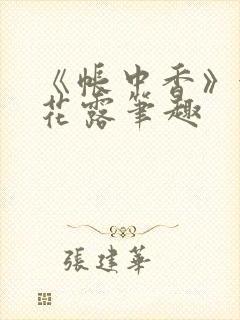 《帳中香》
花露筆趣
張建華